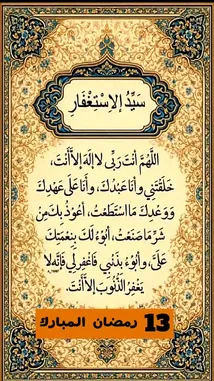 سَيِّدُ الِاسْتِغْفَارِ
اللَّهُمَّ أَنْتَ رَبِّي لَا إِلَهَ إِلَّا أَنْتَ،
خَلَقْتَنِي وَأَنَا عَبْدُكَ، وَأَنَا عَلَى عَهْدِكَ
وَوَعْدِكَ مَا اسْتَطَعْتُ، أَعُوذُ بِكَ مِنْ
شَرِّ مَا صَنَعْتُ، أَبُوءُ لَكَ بِنِعْمَتِكَ
عَلَيَّ، وَأَبُوءُ بِذَنْبِي فَاغْفِرْ لِي فَإِنَّهُ لَا
يَغْفِرُ الذُّنُوبَ إِلَّا أَنْتَ.
13 رمضان المبارك